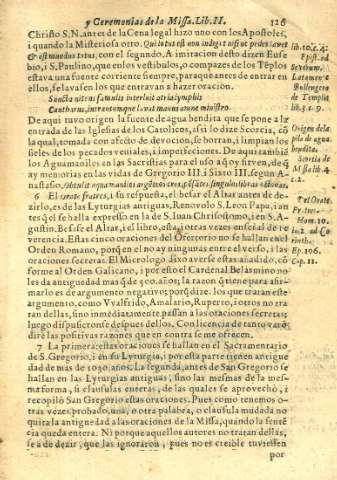 y Ceremonias de la Missa. Lib. II. 126
Christo S. N. antes de la Cena legal hizo uno con los Apostoles,
i quando la Misteriosa otro. Qui lotus est non indiget nisi ut pedes lavet
& est mundus totus, con el segundo. A imitacion desto dizen Euse
bio, i S. Paulino, que en los vestibulos, o compazes de los Tẽplos
estava una fuente corriente siempre, para que antes de entrar en
ellos, se lavassen los que entravan a hazer oracion.
Sancta nitens famulis interluit atria lymphis
Cantharus, intrantumque lavat manus amne ministro.
De aqui tuvo origen la fuente de agua bendita que se pone a la
entrada de las Iglesias de los Catolicos, assi lo dize Scorcia, cõ
la qual, tomada con afecto de devocion, se borran, i limpian los
fieles de los pecados veniales, i imperfecciones. De aqui tambiẽ
los Aguamaniles en las Sacristias para el uso que oy sirven, de q̃
ay memorias en las vidas de Gregorio III. i Sixto III. segun A-
nastasio. Obtulit aquamanilos argenteos tres, pẽsantes singuli libras octonas.
6 El orate fratres, i su respuesta, el besar el Altar antes de de-
zirlo, es de las Lyturgias antiguas, Renovolo S. Leon Papa, i an
tes q̃ el se halla expresso en la de S. Iuan Chrisostomo, i en S. A-
gustin. Besase el Altar, i el libro, estas i otras vezes en señal de re
verencia. Estas cinco oraciones del Ofertorio no se hallan en el
Orden Romano, porq̃ en el no ay ningunas entre el verso, i las
oraciones secretas. El Micrologo dixo averse estas añadido, cõ
forme al Orden Galicano, i por esto el Cardenal Belarmino no
les da antiguedad mas q̃ de 500. años; la razon q̃ tiene para afir-
marlo es de argumento negativo; porq̃ dize: los que tratan este
argumento, como Vvalfrido, Amalario, Ruperto, i otros no tra
tan dellas, sino inmediatamente passan a las oraciones secretas;
luego dispusieronse despues dellos. Con licencia de tanto varõ
diré las positivas razones que en contra se me ofrecen.
7 La primera: estas oraciones se hallan en el Sacramentario
de S. Gregorio, i en su Lyturgia, i por esta parte tienen antigue
dad de mas de 1030. años. La segunda, antes de San Gregorio se
hallan en las Lyturgias antiguas, sino las mesmas de la mes-
ma forma, si clausulas enteras, de las quales se aprovechó, i
recopiló San Gregorio estas oraciones. Pues como tenemos o-
tras vezes probado, una, o otra palabra, o clausula mudada no
quita la antiguedad a las oraciones de la Missa, quando la sentẽ
cia queda entera. Ni porque aquellos autores no tratan dellas,
se a de dezir, que las ignoraron, pues no es creible tuviessen
por
lib. 10. c. 4.
Epist. ad
Severum.
Latomo e
Bollengero
de Templis
lib. 3. c. 9.
Origen de la
pila de agua
bendita.
Scortia de
Missa lib. 4.
c. 2.
Hom. 10.
in 2. ad Co
rinth.
Ep. 106.
Cap. 11.